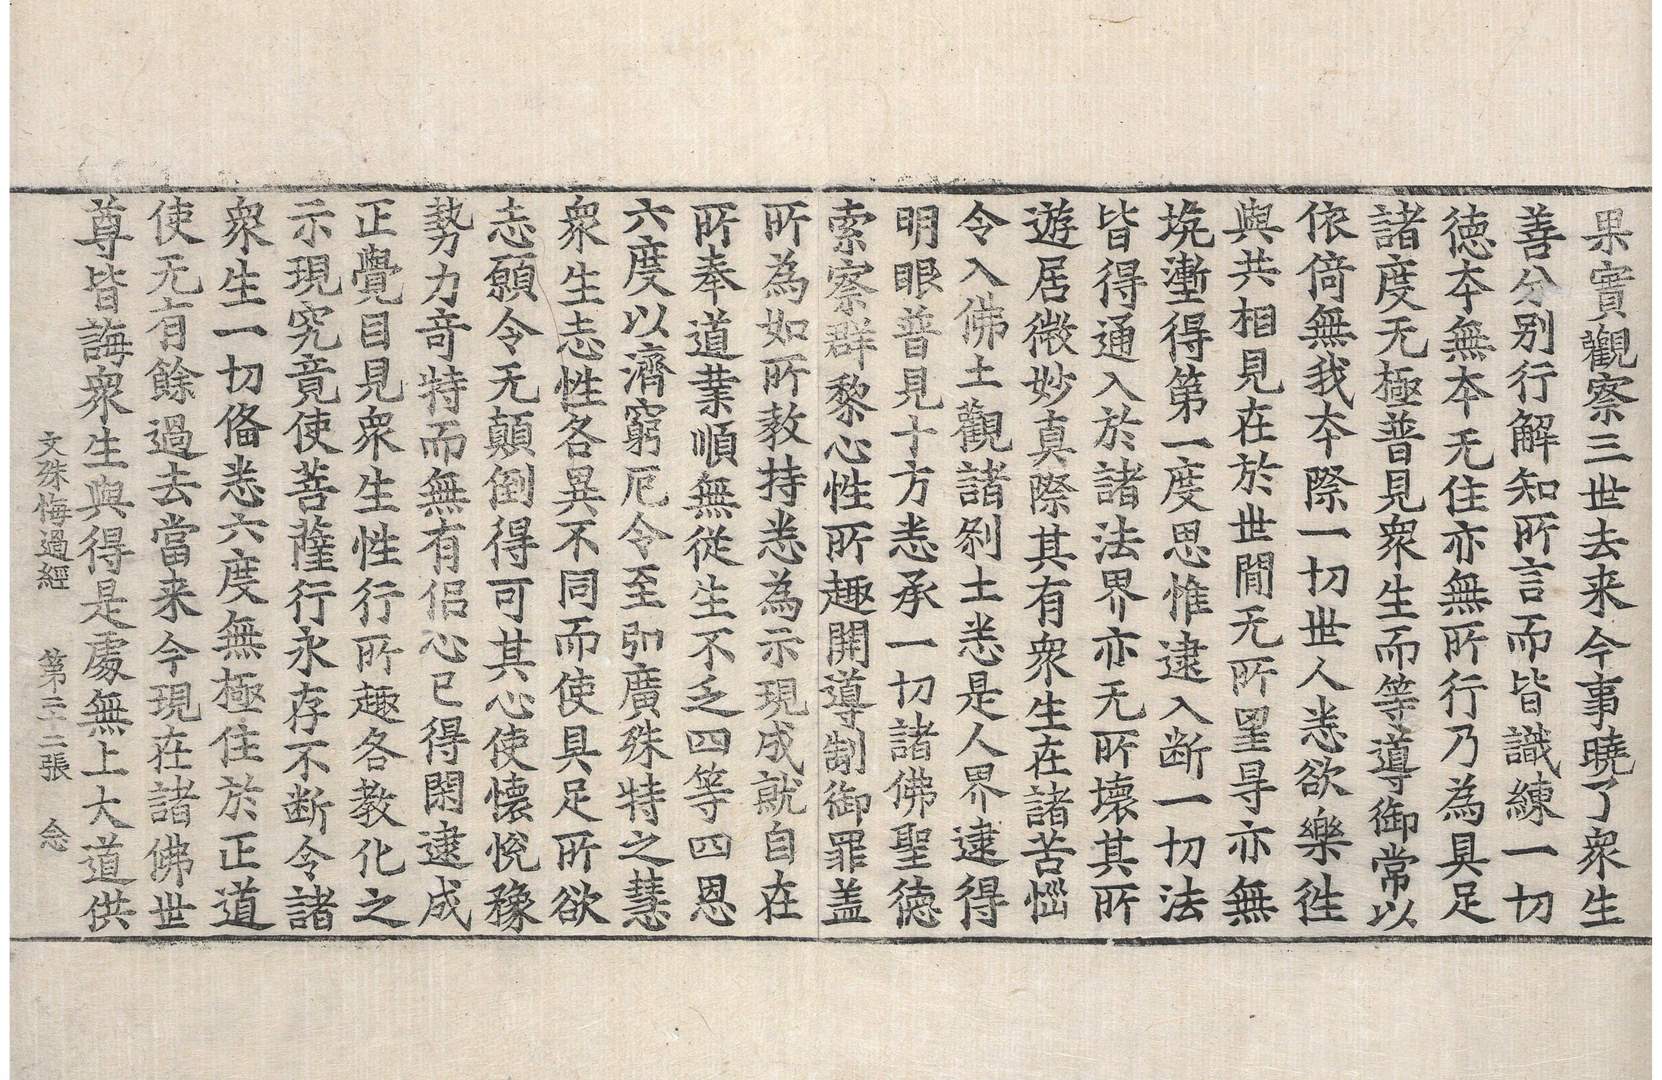 果實觀察三世去来今事曉了衆生
善分别行解知所言而皆識練一切
徳本無本无住亦無所行乃為具足
諸度无極普見衆生而等導御常以
依倚無我本際一切世人恙欲樂徃
與共相見在於世間无所罣㝵亦無
㙇壍得第一度思惟逮入断一切法
皆得通入於諸法界亦无所壞其所
遊居微妙真際其有衆生在諸苦惱
令入佛土觀諸刹土恙是人界逮得
明眼普見十方恙承一切諸佛聖徳
索察群黎心性所趣開導制御罪盖
所為如所教持恙為示現成就自在
所奉道業順無從生不乏四等四恩
六度以濟窮厄令至弘廣殊特之慧
衆生志性各異不同而使具足所欲
志願令无顛倒得可其心使懐悅豫
勢力竒特而無有侣心已得閑逮成
正覺目見衆生性行所趣各教化之
示現究竟使菩薩行永存不断令諸
衆生一切俻恙六度無極住於正道
使无有餘過去當来今現在諸佛世
尊皆誨衆生與得是處無上大道供
文殊悔過經 第二十二張 念